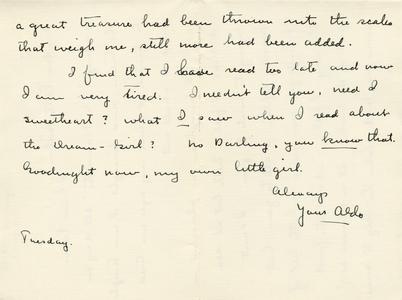 a great treasure had been thrown into the scales
that weigh me, still more had been added.
I find that I have read too late and now
I am very tired. I needn't tell you, need I
sweetheart? what I saw when I read about
the Dream-Girl? No Darling, you know that.
Goodnight now, my own little girl.
Always
Your Aldo
Tuesday.